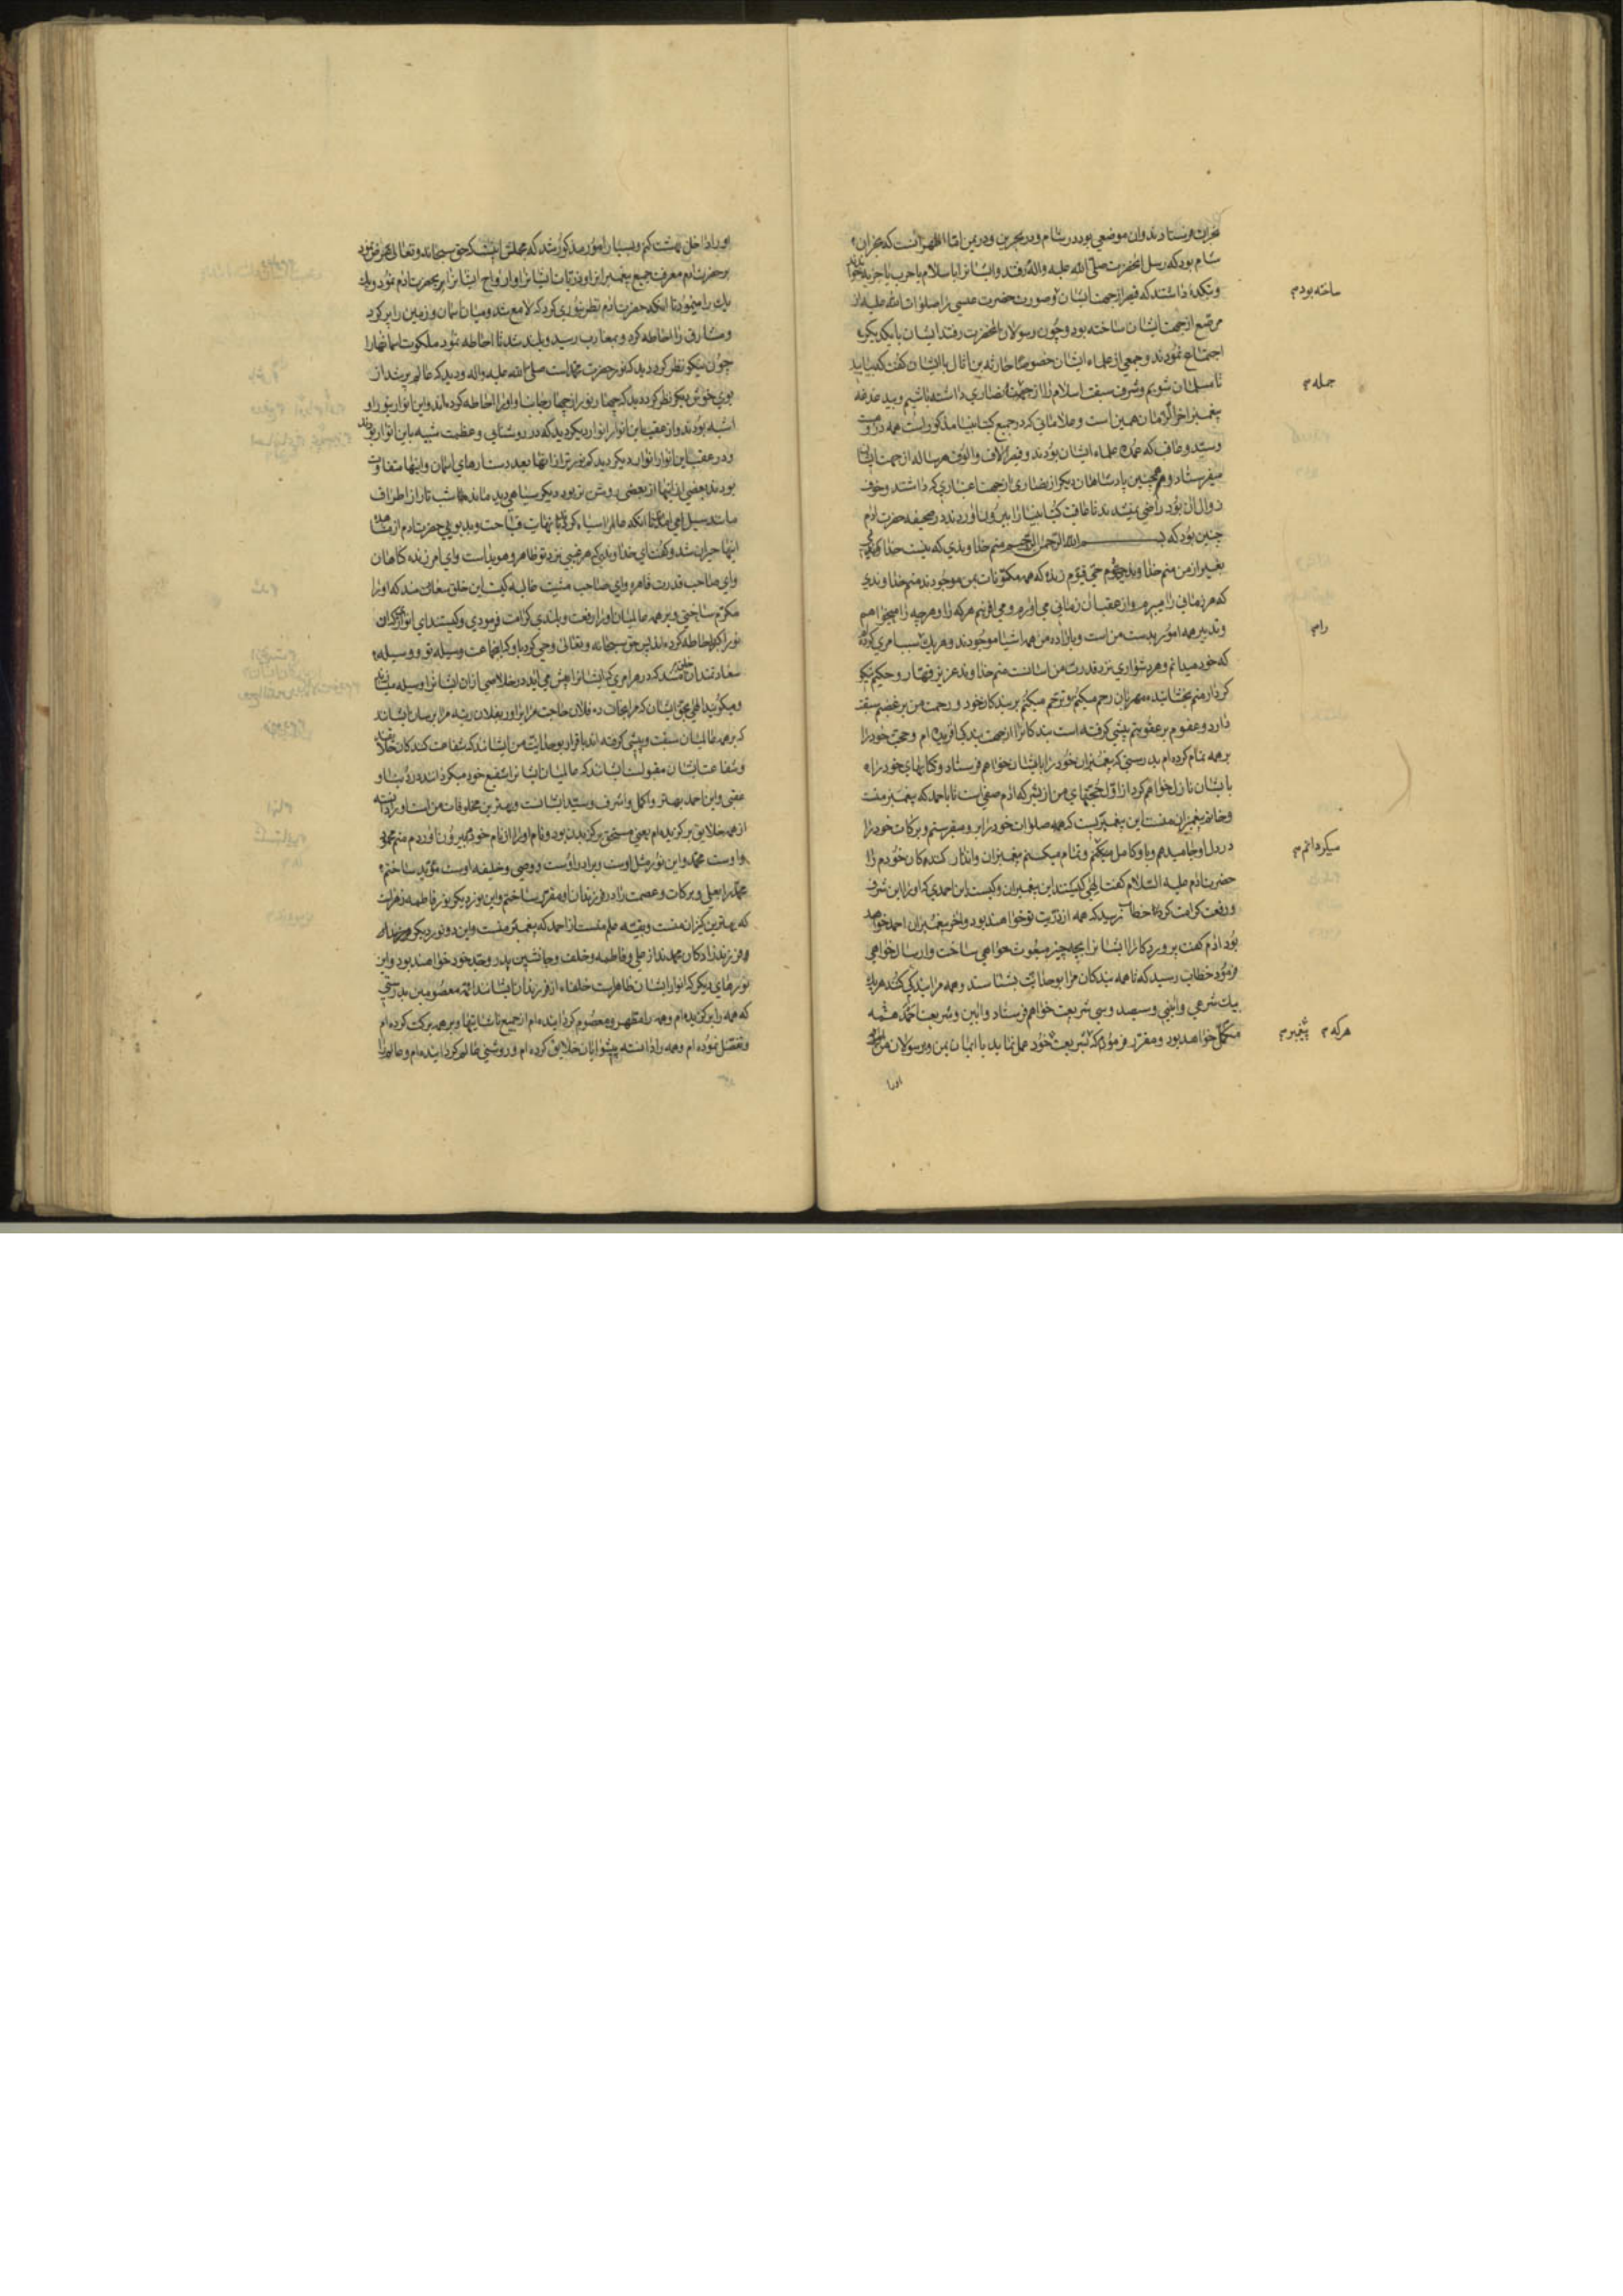 نجران فرستادند وان موضعی بود در شام و در بحرین و در یمن اما اظهر آنست که نجران
شام بود که رسل آنحضرت صلی الله علیه واله رفتند وایشانرا باسلام یا حرب یا جزیه خواندند
و بتکدهٔ داشتند که قیصر از جهت ایشان و صورت حضرت عیسی را صلوات الله علیه از
مرصع از جهت ایشان ساخته بود و چون رسولان آنحضرت رفتند ایشان با یکدیکر
ساخته بودم
اجتماع نمودند و جمعی از علماء ایشان خصوصا حارثه بن اثال با ایشان گفت که بیایید
تا مسلمان شویم و شرف سبقت اسلام را از جهت نصاری داشته باشیم و بیدغدغه
جمله م
پیغمبر آخر الزمان همین است و علاماتی که در جمیع کتب انبیا مذکور است همه در اوست
و سید و عاقب که عمده علماء ایشان بودند و قیصر آلاف والوف هر ساله از جهت ایشان
میفرستاد و همچنین پادشاهان دیکر از نصاری از جهت اعتباری که داشتند و خوف
زوال آن بود راضی نمیشدند تا عاقبت کتب انبیا را بیرون آوردند در صحیفه حضرت آدم
چنین بود که بسم الله الرحمن الرحیم منم خداوندی که نیست خداوندی
بغیر از من منم خداوند حی قیوم زنده که همه مکونات بمن موجودند منم خداوندی
که هر زمانی را میبرم و از عقب آن زمانی می آورم و می آفرینم هر که را و هر چه را میخواهم
و تدبیر همه امور بدست من است و باراده من همه اشیا موجودند و هر یک سبب امری کرده
رام
که خود میدانم و هر دشواری نزد قدرت من آسانست منم خداوند عزیز قهار و حکیم نیکو
کردار منم بخشاینده مهربان رحم میکنم و ترحم میکنم بر بندکان خود و رحمت من بر غضبم سبقت
دارد و عفوم بر عقوبتم پیشی گرفته است بندکانرا از جهت بندکی آفریده ام و حجت خود را
بر همه تمام کرده ام بدرستی که پیغمبران خود را بایشان خواهم فرستاد و کتابهای خود را
بایشان نازل خواهم کرد از اول حجتهای من از بشر که آدم صفی است تا باحمد که پیغمبر منست
و خاتم پیغمبران منست این پیغمبریست که همه صلوات خود را بر او میفرستم و برکات خود را
در دل او جا میدهم و باو کامل میکنم و تمام میکنم پیغمبران و انذار کننده کان خودم را
میکردانم م
حضرت آدم علیه السلام گفت الهی کیستند این پیغمبران و کیست این احمدی که او را این شرف
و رفعت کرامت کردهٔ خطاب رسید که همه از ذریت تو خواهند بود و آخر پیغمبران احمد خواهد
بود آدم گفت پروردکارا ایشانرا بچه چیز مبعوث خواهی ساخت وارسال خواهی
فرمود خطاب رسید که تا همه بندکان مرا بوحدانیت بشناسند و همه مرا بندکی کنند هر یک
بیک شرعی و آئینی و سیصد و سی شریعت خواهم فرستاد و آئین و شریعت احمد همه
مکمل خواهد بود و مقرر فرمودم که شریعت خود عمل نماید با ایمان بمن و رسولان من
هرکه م پیغمبرم
اورا
اورا داخل بهشت کنم و بسیار امور مذکور شد که مجملش اینست که حق سبحانه وتعالی عرض نمود
بر حضرت آدم معرفت جمیع پیغمبران او و ذریات ایشانرا و ارواح ایشانرا بر حضرت آدم نمود و یک
یک را مینمود تا آنکه حضرت آدم نظر بنوری کرد که لامع شد و میان آسمان و زمین را پر کرد
و مشارق را احاطه کرد و بمغارب رسید و بلند شد تا احاطه نمود ملکوت آسمانها را
چون نیکو نظر کرد دید که نور حضرت محمد است صلی الله علیه واله و دید که عالم پر شد از
بوی خوش دیکر نظر کرد دید که چهار نور از چهار جانب او او را احاطه کرده اند و این انوار بنور او
اشبه بودند و از عقب این انوار انوار دیکر دید که در روشنایی و عظمت شبیه باین انوار بودند
و در عقب این انوار انوار دیکر دید کم نورتر از آنها بعدد ستارهای آسمان و اینها متفاوت
بودند بعضی از اینها از بعضی روشن تر بود دیکر سیاهی دید مانند شب تار از اطراف
مانند سیل می آمدند تا آنکه عالم را سیاه کرد با نهایت قباحت و بدبویی حضرت آدم از مشاهده
اینها حیران شد و گفت ای خداوندی که هر غیبی نزد تو ظاهر و هویداست و ای آمرزنده کناهان
و ای صاحب قدرت قاهره و ای صاحب مشیت غالبه کیست این خلق سعادتمند که او را
مکرم ساختی و بر همه عالمیان او را رفعت و بلندی کرامت فرمودی و کیستند این انوار که آن
نور را احاطه کرده اند پس حق سبحانه وتعالی وحی کرد باو که اینجماعت وسیله تو و وسیله
سعادتمندان خلقند که در هر امری که ایشانرا پیش می آید در خلاصی از آن ایشانرا وسیله میسازند
و میکویند الهی بحق ایشان که مرا نجات ده فلان حاجت مرا برآور بفلان رتبه مرا برسان ایشانند
که بر همه عالمیان سبقت و پیشی گرفته اند باقرار بوحدانیت من ایشانند که شفاعت کنندکان خلایقند
و شفاعت ایشان مقبولست ایشانند که عالمیان ایشانرا شفیع خود میکردانند در دنیا و
عقبی و این احمد بهتر و اکمل و اشرف و سید ایشانست و بهترین مخلوقات منست او را دانسته
از همه خلایق برکزیده ام یعنی مستحق برکزیدن بود و نام او را از نام خود بیرون آوردم منم محمود
و اوست محمد و این نور مثل اوست و برادر اوست و وصی و خلیفه اوست مؤید ساختم
محمد را بعلی و برکات و عصمت را در فرزندان او مقرر ساختم و این نور دیکر نور فاطمه زهراست
که بهترین کنیزان منست و بقیه علم منست از احمد که پیغمبر منست و این دو نور دیکر فرزندان
و فرزندزادکان محمدند از علی و فاطمه و خلف و جانشین پدر و جد خود خواهند بود و این
نورهای دیکر که انوار ایشان ظاهراست خلفاء از فرزندان ایشانند ائمه معصومین بدرستی
که همه را برکزیده ام و همه را مطهر و معصوم کردانیده ام از جمیع ناشایستها و بر همه برکت کرده ام
و تفضل نموده ام و همه را دانسته پیشوایان خلایق کرده ام و روشنی عالم کردانیده ام و عالم را